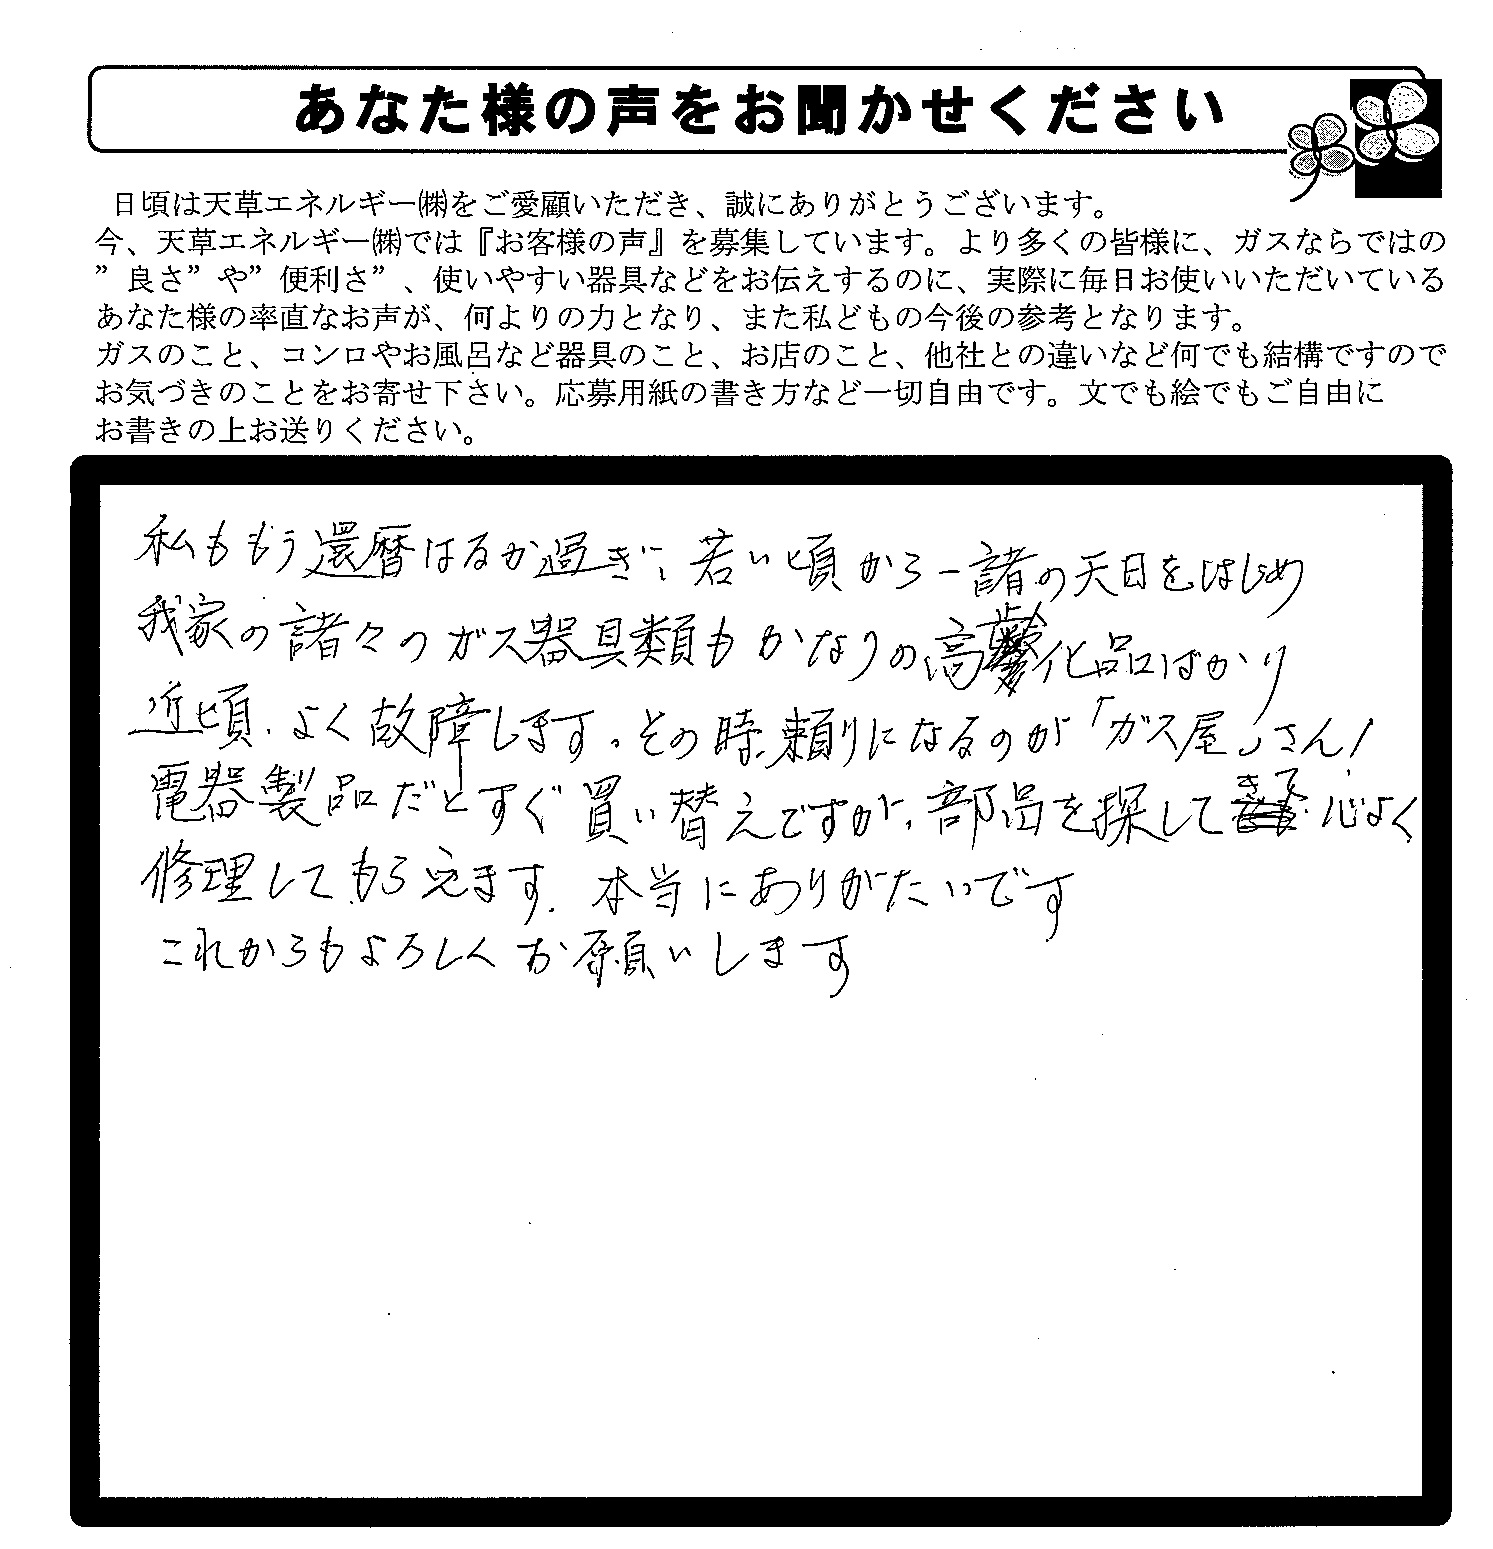 あなた様の声をお聞かせください
日頃は天草エネルギー㈱をご愛顧いただき、誠にありがとうございます。
今、天草エネルギー㈱では『お客様の声』を募集しています。より多くの皆様に、ガスならではの
”良さ”や”便利さ”、使いやすい器具などをお伝えするのに、実際に毎日お使いいただいている
あなた様の率直なお声が、何よりの力となり、また私どもの今後の参考となります。
ガスのこと、コンロやお風呂など器具のこと、お店のこと、他社との違いなど何でも結構ですので
お気づきのことをお寄せ下さい。応募用紙の書き方など一切自由です。文でも絵でもご自由に
お書きの上お送りください。
私ももう還暦はるか過ぎ、若い頃から一諸の天日をはじめ
我家の諸々のガス器具類もかなりの高齢化品ばかり
近頃、よく故障します。その時、頼りになるのが「ガス屋」さん!
電器製品だとすぐ買い替えですが、部品を探してきて、心よく
修理してもらえます。本当にありがたいです
これからもよろしくお願いします